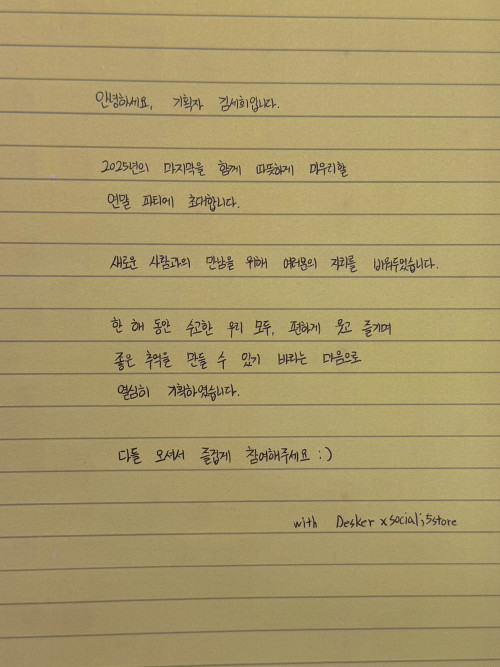 안녕하세요, 기획자 김세희입니다.
2025년의 마지막을 함께 따뜻하게 마무리할
연말 파티에 초대합니다.
새로운 사람과의 만남을 위해 여러분의 자리를 비워두었습니다.
한 해 동안 수고한 우리 모두, 편하게 웃고 즐기며
좋은 추억을 만들 수 있기 바라는 마음으로
열심히 기획하였습니다.
다들 오셔서 즐겁게 참여해주세요 :)
with Desker x social;5store